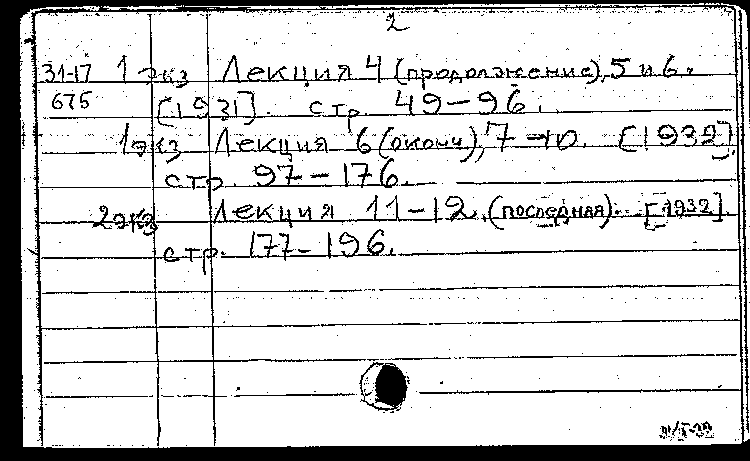 2
31-17 1 экз Лекция 4 (продолжение), 5 и 6.
675 [1931]. стр. 49-96.
1 экз Лекция 6 (оконч), 7-10. [1932]
стр. 97-176.
2 экз Лекция 11-12 (последная). [1932].
стр. 177-196.